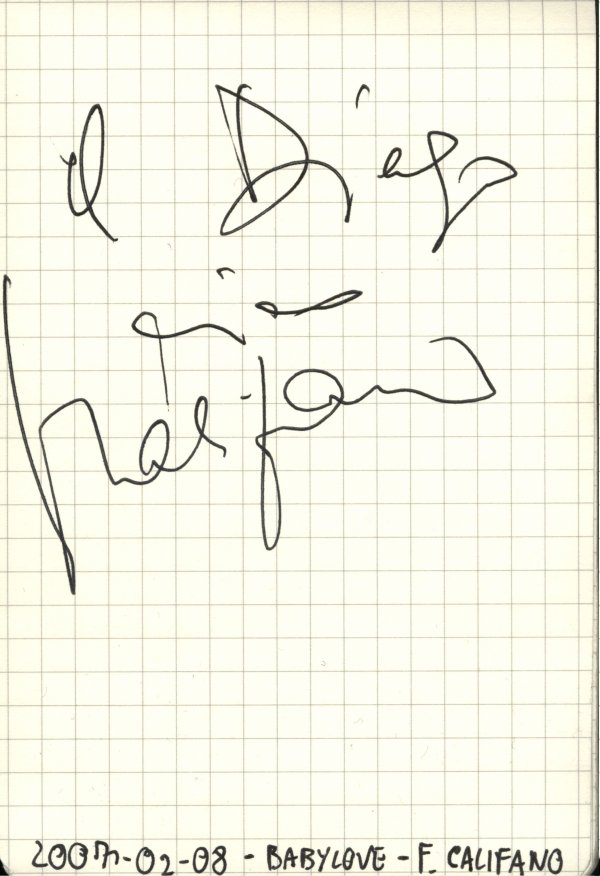 a Diego
Califano
2007-02-08 - BABYLOVE - F. CALIFANO